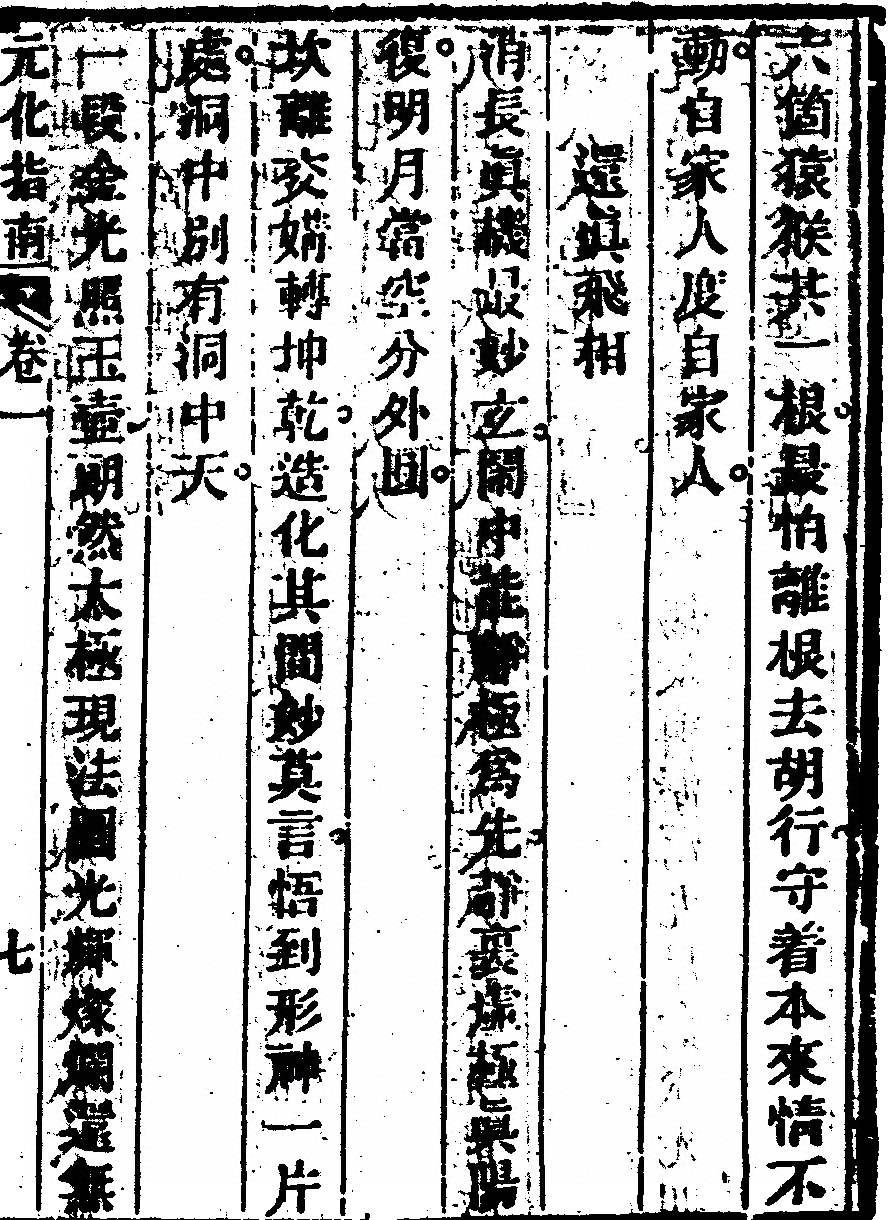 六箇猿猴共一根最怕離根去胡行守着本來情不
動自家人度自家人
還眞飛相
消長眞機最妙玄鬧中能靜極爲先靜裏虛極眞陽
復明月當空分外圓
坎離交媾轉坤乾造化其間妙莫言悟到形神一片
處洞中別有洞中天
一段金光照玉壺朗然太極現法圖光輝燦爛還無
元化指南 卷一 七